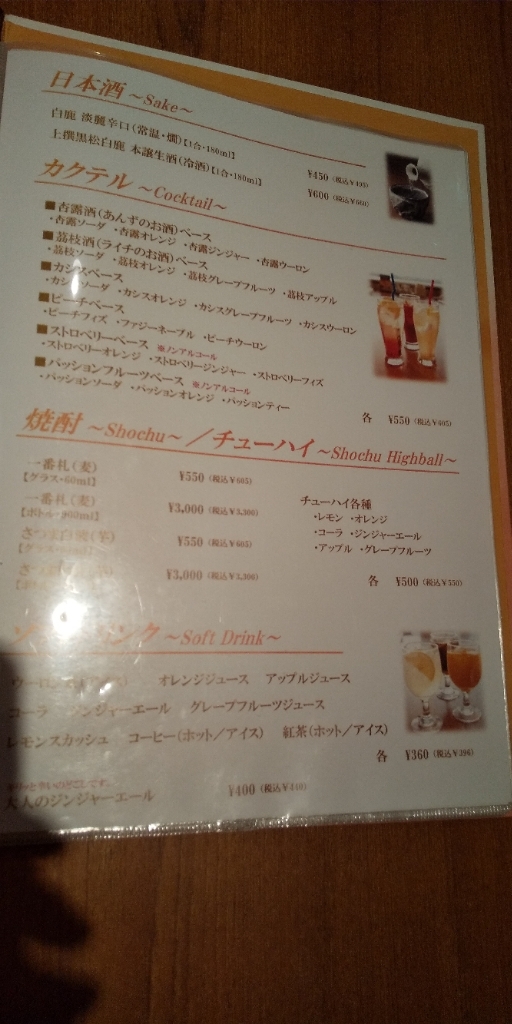 日本酒 ~Sake~
白鹿 淡麗辛口(常温・燗)【1合・180ml】 ¥450 (税込¥495)
上撰黒松白鹿 本醸生酒(冷酒)【1合・180ml】 ¥600 (税込¥660)
カクテル ~Cocktail~
■杏露酒(あんずのお酒)ベース
・杏露ソーダ ・杏露オレンジ ・杏露ジンジャー ・杏露ウーロン
■茘枝酒(ライチのお酒)ベース
・茘枝ソーダ ・茘枝オレンジ ・茘枝グレープフルーツ ・茘枝アップル
■カシスベース
・カシスソーダ ・カシスオレンジ ・カシスグレープフルーツ ・カシスウーロン
■ピーチベース
・ピーチフィズ ・ファジーネーブル ・ピーチウーロン
■ストロベリーベース ※ノンアルコール
・ストロベリーオレンジ ・ストロベリージンジャー ・ストロベリーフィズ
■パッションフルーツベース ※ノンアルコール
・パッションソーダ ・パッションオレンジ ・パッションティー
各 ¥550 (税込¥605)
焼酎 ~Shochu~ /チューハイ ~Shochu Highball~
一番札(麦) ¥550 (税込¥605)
【グラス・60ml】
一番札(麦) ¥3,000 (税込¥3,300)
【ボトル・900ml】
さつま白波(芋) ¥550 (税込¥605)
【グラス・60ml】
¥3,000 (税込¥3,300)
チューハイ各種
・レモン ・オレンジ
・コーラ ・ジンジャーエール
・アップル ・グレープフルーツ
各 ¥500 (税込¥550)
ソフトドリンク ~Soft Drink~
オレンジジュース アップルジュース
コーラ ジンジャーエール グレープフルーツジュース
レモンスカッシュ コーヒー(ホット/アイス) 紅茶(ホット/アイス)
各 ¥360 (税込¥396)
大人のジンジャーエール ¥400 (税込¥440)